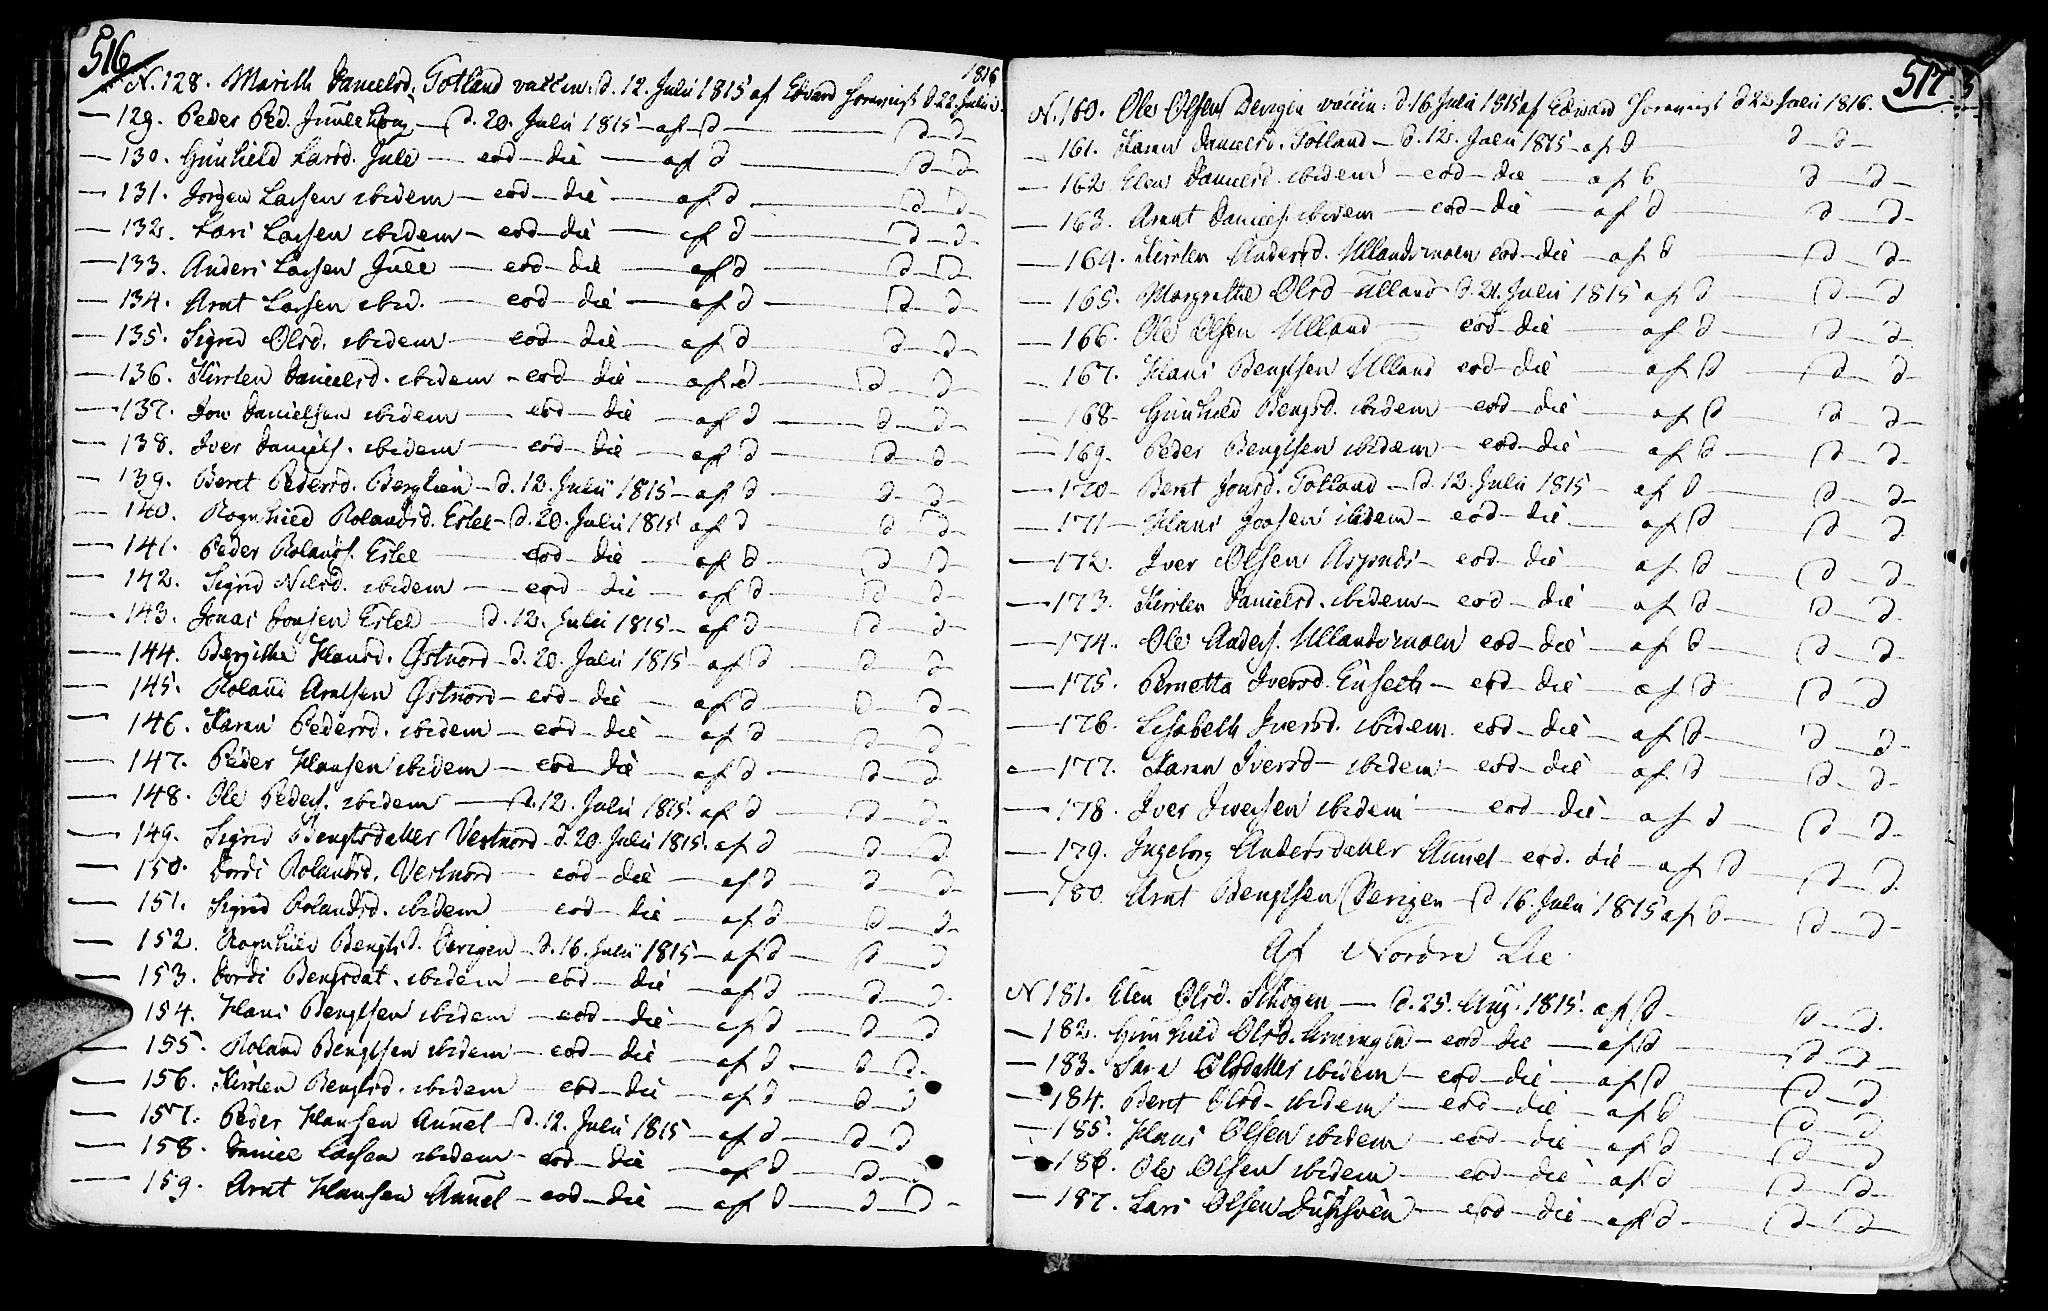 516
1816
N. 128. Marith Danielsd. Totland vaccin: d. 12. Julii 1815 af Edvard d 22. Julii
— 129. Peder Ped. — d. 20. Julii 1815 — af — d — d — d —
— 130. Gunhild Larsd. Jule — eod — die — af d — d — d —
— 131. Jörgen Larsen ibidem — eod — die — af d — d — d —
— 132. Lars Larsen ibidem — eod — die — af d — d — d —
— 133. Anders Larsen Jule — eod — die — af d — d — d —
— 134. Arnt Larsen ibid. — eod — die — af d — d — d —
— 135. Sigrid Olsd. ibidem — eod — die — af d — d — d —
— 136. Kirsten Danielsd. ibidem — eod — die — af d — d — d —
— 137. Jon Danielsen ibidem — eod — die — af d — d — d —
— 138. Iver Daniels. ibidem — eod — die — af d — d — d —
— 139. Beret Pedersd. Berglien — d. 12. Julii 1815 — af d — d — d —
— 140. Ragnhild Rolandsd. Estel — d. 20. Julii 1815 af d — d — d —
— 141. Peder Rolands. Estel — eod — die — af d — d — d —
— 142. Sigrid Nilsd. ibidem — eod — die — af d — d — d —
— 143. Jonas Jonsen Estel — d. 12. Julii 1815 — af d — d — d —
— 144. Bergithe Hansd. Østnord — d. 20. Julii 1815 — af d — d — d —
— 145. Roland Arntsen Østnord — eod — die — af d — d — d —
— 146. Karen Pedersd. ibidem — eod — die — af d — d — d —
— 147. Peder Hansen ibidem — eod — die — af d — d — d —
— 148. Ole Peders. ibidem — d. 12. Julii 1815. af d — d — d —
— 149. Sigrid Bengtsdatter Vestnord — d. 20. Julii 1815. af d — d — d
— 150. Dordi Rolandsd. Vestnord — eod — die — af d — d — d —
— 151. Sigrid Rolandsd. ibidem — eod — die — af d — d — d —
— 152. Ragnhild Bengtsd. Devigen — d. 16. Julii 1815 — af d — d — d
— 153. Dordi Bengtsdat. ibidem — eod — die — af d — d — d
— 154. Hans Bengtsen ibidem — eod — die — af d — d — d
— 155. Roland Bengtsen ibidem — eod — die — af d — d — d
— 156. Kirsten Bengtsd. ibidem — eod — die — af d — d — d
— 157. Peder Hansen Aunel — d. 12. Julii 1815 — af d — d — d
— 158. Daniel Larsen ibidem — eod — die — af d — d — d
— 159. Arnt Hansen Aunel — eod — die — af d — d — d —
517
N. 160. Ole Olsen Devigen vaccin: d. 16. Julii 1815 af Edward d 22 Julii 1816.
— 161. Karen Danielsd. Totland — d. 12. Julii 1815 — af d — d — d —
— 162. Elen Danielsd. ibidem — eod — die — af d — d — d —
— 163. Arnt Daniels. ibidem — eod — die — af d — d — d —
— 164. Kirsten Andersd. Ullandsmoen eod — die — af d — d — d —
— 165. Margrethe Olsd Ulland d. 21. Julii 1815 af d — d — d
— 166. Ole Olsen Ulland — eod — die — af d — d — d —
— 167. Hans Bengtsen Ulland eod — die — af d — d — d —
— 168. Gunhild Bengtsd. ibidem — eod — die — af d — d — d —
— 169. Peder Bengtsen ibidem — eod — die — af d — d — d —
— 170. Beret Jonsd. Totland — d. 12. Julii 1815 — af d — d — d —
— 171 — Hans Jonsen ibidem — eod — die — af d — d — d
— 172. Iver Olsen — eod — die — af d — d — d —
— 173. Kirsten Danielsd. ibidem — eod — die — af d — d — d —
— 174. Ole Anders. Ullandsmoen eod — die — af d — d — d —
— 175. Pernetta Iversd. — eod — die — af d — d — d
— 176. Lisabeth Iversd. ibidem. eod — die — af d — d — d —
— 177. Karen Iversd — ibidem — eod — die — af d — d — d —
— 178. Iver Iversen ibidem — eod — die — af d — d — d —
— 179. Ingeborg Andersdatter Aunel — eod. die — af d — d — d.
— 180. Arnt Bengtsen Devigen — d. 16. Julii 1815 af d — d — d —
Af Nordre Lie.
N 181. Elen Olsd. Schogen — d. 25. Aug. 1815. af d — d — d.
— 182. Gunhild Olsd. — eod die — af d — d — d —
— 183. Olsdatter ibidem — eod — die — af d — d — d
— 184. Beret Olsd — ibidem — eod — die — af d — d — d
— 185. Hans Olsen ibidem — eod — die — af d — d — d
— 186. Ole Olsen ibidem — eod — die — af d — d — d —
— 187. Lars Olsen — eod — die — af d — d — d —